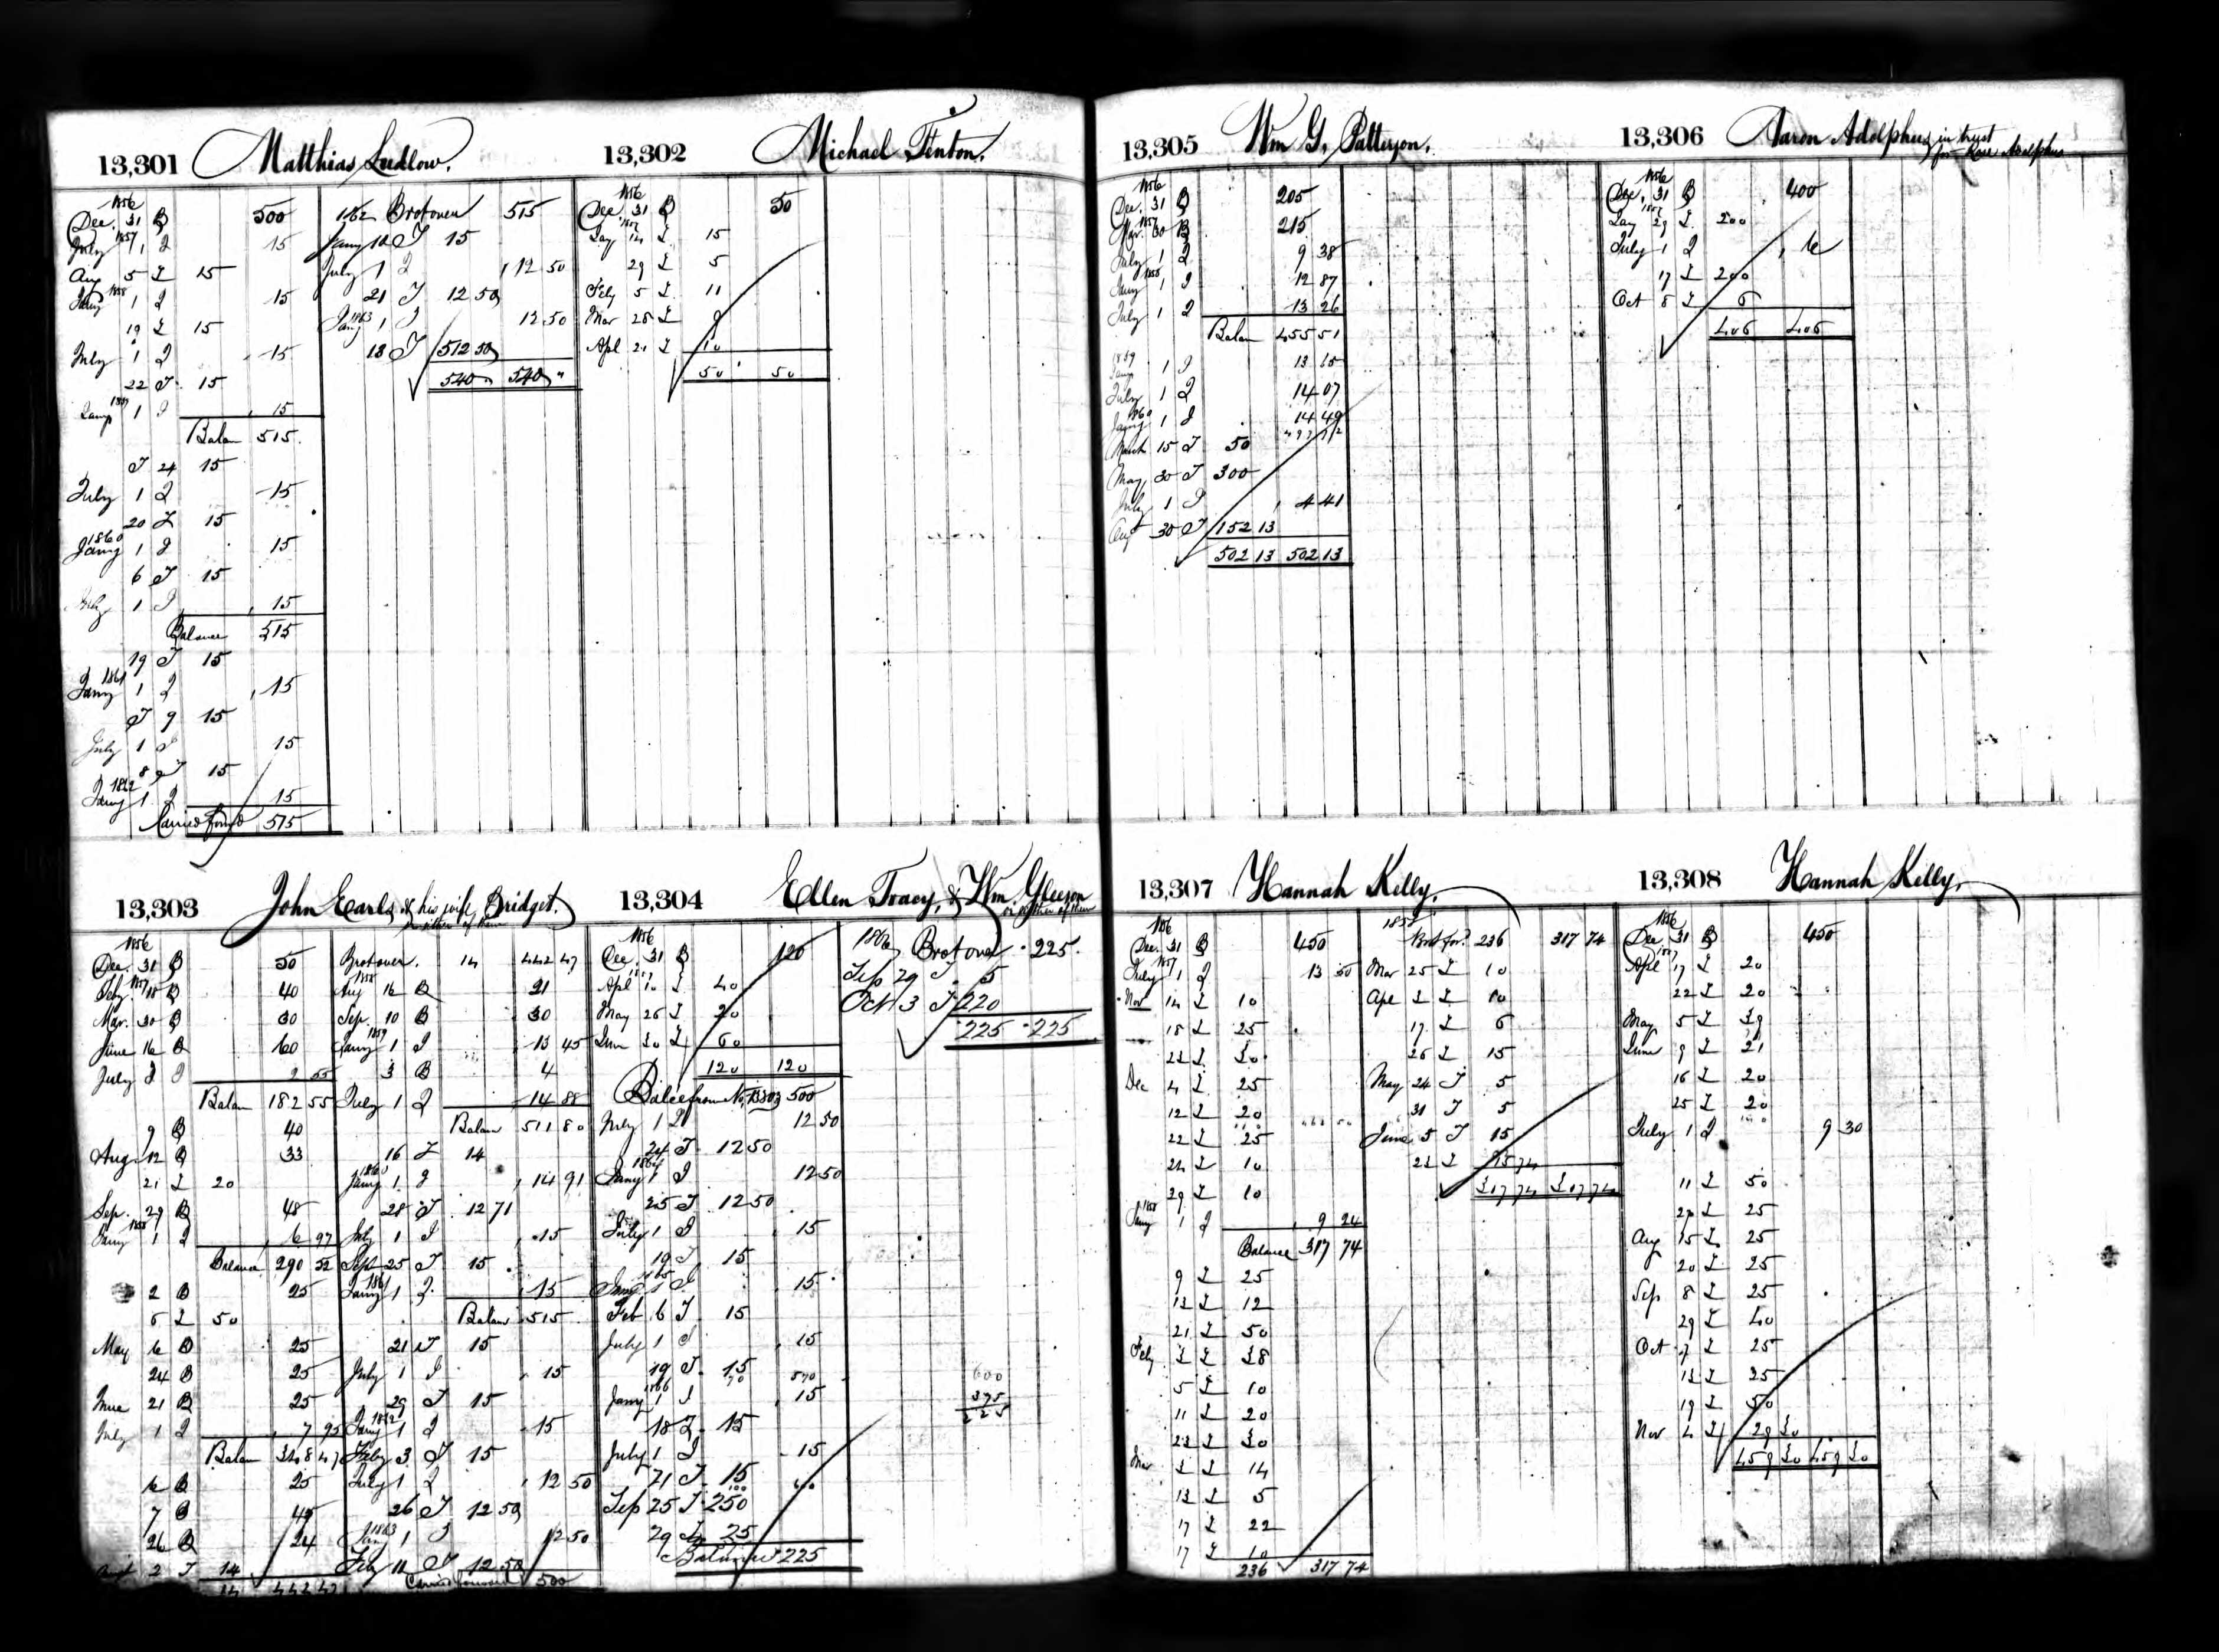 13,301 Matthias Ludlow.
1856
Dec. 31 B 500
1857
July 1 I 15
Aug 5 L 15
1858
Jany 1 I 15
19 L 15
July 1 I 15
22 T 15
1859
Jany 1 I 15
Balan 515.
T 24 15
July 1 I 15
20 L 15
1860
Jany 1 I 15
6 T 15
July 1 I 15
Balance 515
19 T 15
1861
Jany 1 I 15
T 9 15
July 1 I 15
8 T 15
1862
Jany 1 I 15
Carried forwd 515
1862 Brot over 515
Jany 12 T 15
July 1 I 12 50
21 T 12 50
1863
Jany 1 I 12 50
18 T 512 50
540 " 540 "
13,302 Michael Fenton.
1856
Dec. 31 B 50
1857
Jany 14 L 15
29 L 5
Feby 5 L 11
Mar 28 L 9
Apl 21 L 10
50 50
13,303 John Earls & his wife Bridget.
or either of them
1856
Dec. 31 B 50
1857
Feby 18 B 40
Mar. 30 B 30
June 16 B 60
July 1 I 2 55
Balan 182 55
9 B 40
Aug 12 B 33
21 L 20
Sep. 29 B 48
1858
Jany 1 I 6 97
Balance 290 52
2 B 25
5 L 50
May 6 B 25
24 B 25
June 21 B 25
July 1 I 7 95
Balan 348 47
6 B 25
7 B 45
26 B 24
Augt 2 T 14
14 442 47
Brot over. 14 442 47
1858
Aug 16 B 21
Sep. 10 B 30
1859
Jany 1 I 13 45
3 B 4
July 1 I 14 88
Balan 511 80
16 L 14
1860
Jany 1 I 14 91
28 T 12 71
July 1 I 15
Sept 25 T 15
1861
Jany 1 I 15
Balan 515
21 T 15
July 1 I 15
29 T 15
1862
Jany 1 I 15
Feby 3 T 15
July 1 I 12 50
26 T 12 50
1863
Jany 1 I 12 50
Feby 11 T 12 50
Carried forward 500
13,304 Ellen Tracy, & Wm. Gleeson
or either of them
1856
Dec. 31 B 120
1857
Apl 10 L 40
May 26 L 20
June 30 L 60
120 120
Balce from No. 13303 500
July 1 I 12 50
24 T 12 50
1864
Jany 1 I 12 50
25 T 12 50
July 1 I 15
19 T 15
1865
Jany 1 I 15
Feb 6 T 15
July 1 I 15
19 T 15
1866
Jany 1 I 15
18 T 15
July 1 I 15
21 T 15
Sep 25 T 250
29 T 25
Balance 225
1866 Brot over 225.
Sep 29 T 5
Oct 3 T 220
225 225
600
375
225
13,305 Wm G. Patterson.
1856
Dec. 31 B 205
1857
Mar. 30 B 215
July 1 I 9 38
1858
Jany 1 I 12 87
July 1 I 13 26
Balan 455 51
1859
Jany 1 I 13 65
July 1 I 14 07
1860
Jany 1 I 14 49
March 15 T 50
May 30 T 300
July 1 I 4 41
Augt 30 T 152 13
502 13 502 13
13,306 Aaron Adolphus, in trust
for Rose Adolphus
1856
Dec. 31 B 400
1857
Jany 29 L 200
July 1 I 6
17 L 200
Oct 8 L 6
406 406
13,307 Hannah Kelly,
1856
Dec. 31 B 450
1857
July 1 I 13 50
Nov 14 L 10
18 L 25
23 L 30
Dec 4 L 25
12 L 20
22 L 25
24 L 10
29 L 10
1858
Jany 1 I 9 24
Balance 317 74
9 L 25
13 L 12
21 L 50
Feby 3 L 38
5 L 10
11 L 20
23 L 30
Mar 3 L 14
13 L 5
17 L 22
17 L 10
236 317 74
1858
Brot for. 236 317 74
Mar 25 L 10
Apl 3 L 10
17 L 6
26 L 15
May 24 T 5
31 T 5
June 5 T 15
23 L 15 74
317 74 317 74
13,308 Hannah Kelly,
1856
Dec. 31 B 450
1857
Apl 17 L 20
22 L 20
May 5 L 39
June 9 L 21
16 L 20
25 L 20
July 1 I 9 30
11 L 50
27 L 25
Aug 15 L 25
20 L 25
Sep 8 L 25
29 L 40
Oct 7 L 25
13 L 25
19 L 50
Nov 4 L 29 30
459 30 459 30